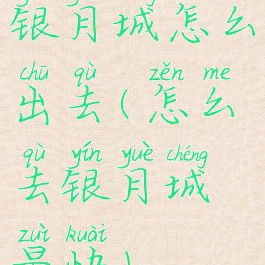 银月城怎么
chū qù zěn me
出去(怎么
qù yín yuè chéng
去银月城
zuì kuài
最快)